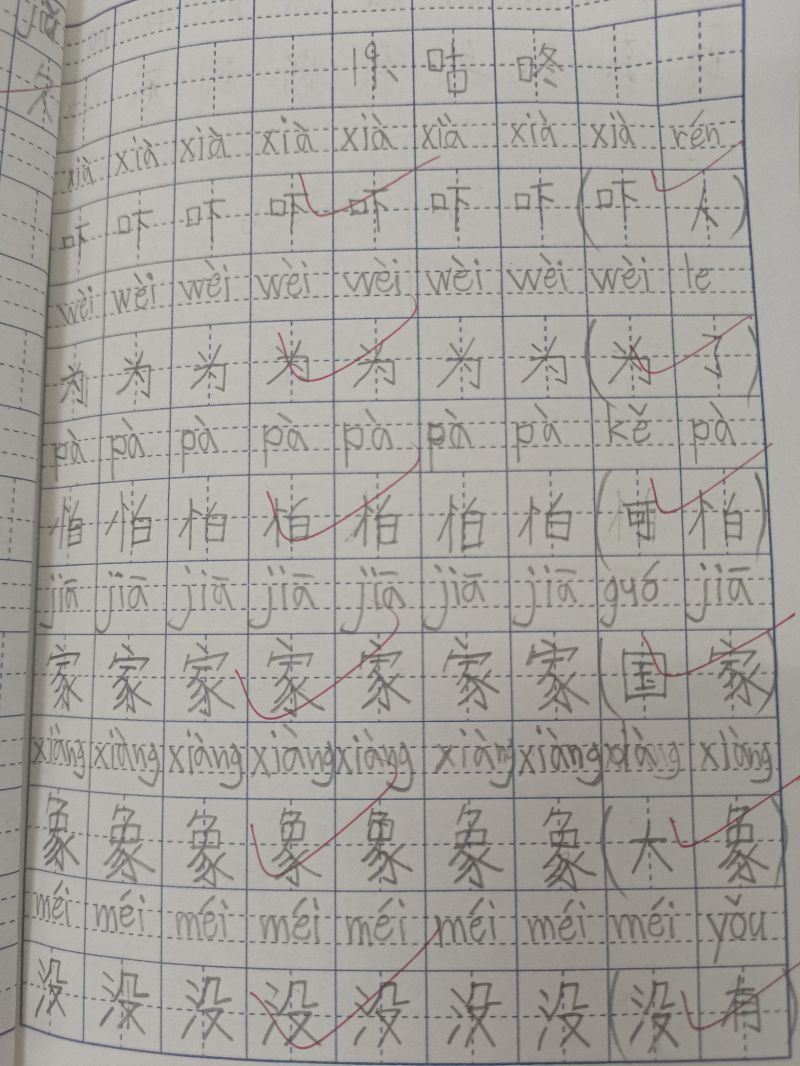 19、咕咚
xià xià xià xià xià xià xià xià rén
吓 吓 吓 吓 吓 吓 吓 (吓 人)
wèi wèi wèi wèi wèi wèi wèi wèi le
为 为 为 为 为 为 为 (为 了)
pà pà pà pà pà pà pà kě pà
怕 怕 怕 怕 怕 怕 怕 (可 怕)
jiā jiā jiā jiā jiā jiā jiā guó jiā
家 家 家 家 家 家 家 (国 家)
xiàng xiàng xiàng xiàng xiàng xiàng xiàng xiàng
象 象 象 象 象 象 象 (大 象)
méi méi méi méi méi méi méi méi yǒu
没 没 没 没 没 没 没 (没 有)